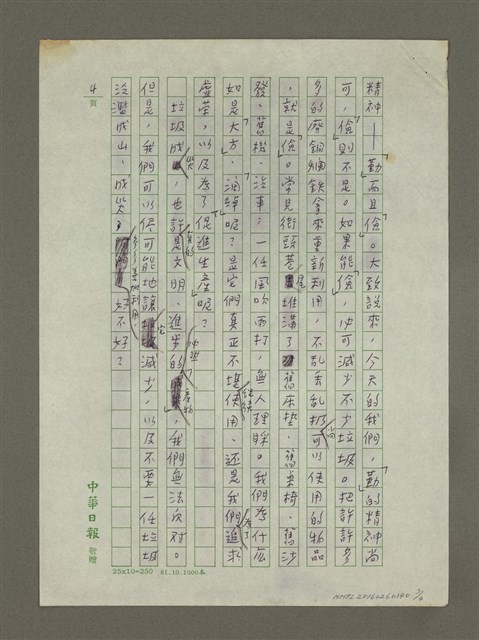 精神——「勤」而且「儉」。大致說來，今天的我們，「勤」的精神尚
可，「儉」則不是。如果能「儉」，必可減少不少垃圾。把許許多
多的廢銅爛鐵拿來重新利用，不亂丟亂扔尚可以使用的物品
，就是「儉」。常見街頭巷尾堆滿了舊床墊、舊桌椅、舊沙
發、舊機、汽車；一任風吹雨打，無人理睬。我們為什麼
如是「大方」、「消」呢？是它們真正不堪繼續使用，還是我們為了追求
虛榮，以及為了「促進生產」呢？
垃圾成災，也許真的是文明、進步的必然產物，我們無法反對。
但是，我們可以儘可能地讓它減少，以及不要一任垃圾
泛濫成山、成災，多多善加利用，好不好？
4
頁
中華日報 敬贈
25x10=250 81.10.1000本
NMTL20160260140 3/4